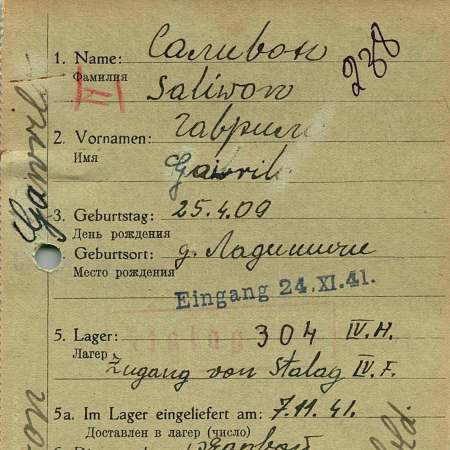 1. Name: Саливон
Фамилия
Saliwon
238
2. Vornamen: Гаврил
Имя
Gawril
3. Geburtstag: 25.4.09
День рождения
Geburtsort: д.
Место рождения
Eingang 24.XI.41.
5. Lager: 304 IV.H.
Лагер
Zugang von Stalag IV.F.
5a. Im Lager eingeliefert am: 7.11.41.
Доставлен в лагер (число)
Gawril